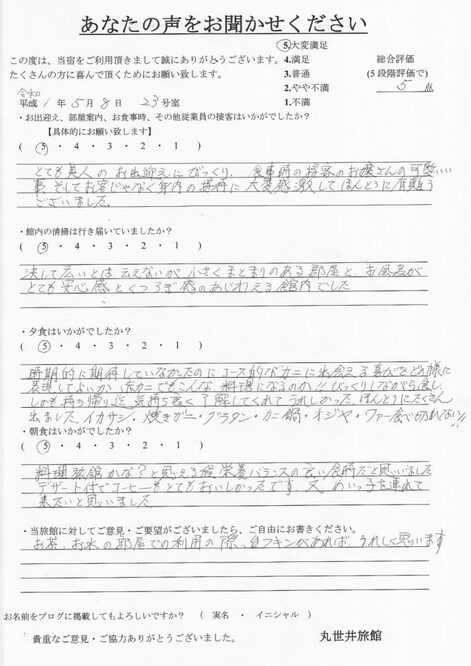 あなたの声をお聞かせください
⑤大変満足
この度は、当宿をご利用頂きまして誠にありがとうございます。 4.満足 総合評価
たくさんの方に喜んで頂くためにお願い致します。 3.普通 (5段階評価で)
2.やや不満 5 点
令和
平成 1年 5月 8日 23号室 1.不満
・お出迎え、部屋案内、お食事時、その他従業員の接客はいかがでしたか?
【具体的にお願い致します】
( ⑤ ・ 4 ・ 3 ・ 2 ・ 1 )
とても美人のお出迎えにびっくり、食事時の接客のお嬢さんの可愛い
そしてお客じゃなく身内の接待に大変感激してほんとうに有難う
ございました。
・館内の清掃は行き届いていましたか?
( ⑤ ・ 4 ・ 3 ・ 2 ・ 1 )
決して広いとは云えないが小さくまとまりのある部屋と、お風呂が
とても安心感とくつろぎ感のあじわえる館内でした
・夕食はいかがでしたか?
( ⑤ ・ 4 ・ 3 ・ 2 ・ 1 )
時期的に期待していなかったのにコース的なカニに出会える喜びをどの様に
表現してよいか、カニでもこんな料理になるのか!!びっくりしながら
しかも持ち帰り迄気持ち良く了解してくれてうれしかった。ほんとうにたくさん
出ました。イカサシ、焼きガニ・グラタン・カニ鍋・オジヤ・ファー食べ切れない!!
・朝食はいかがでしたか?
( ⑤ ・ 4 ・ 3 ・ 2 ・ 1 )
料理旅館かな?と思える程栄養バランスの良い食時だと思いました
デザート付でコーヒーもとてもおいしかったです。又、めいっ子を連れて
来たいと思いました
・当旅館に対してご意見・ご要望がございましたら、ご自由にお書きください。
お茶、お水の部屋での利用の際、フキンがあれば、うれしく思います
お名前をブログに掲載してもよろしいですか? ( 実名 ・ イニシャル )
貴重なご意見・ご協力ありがとうございました。 丸世井旅館